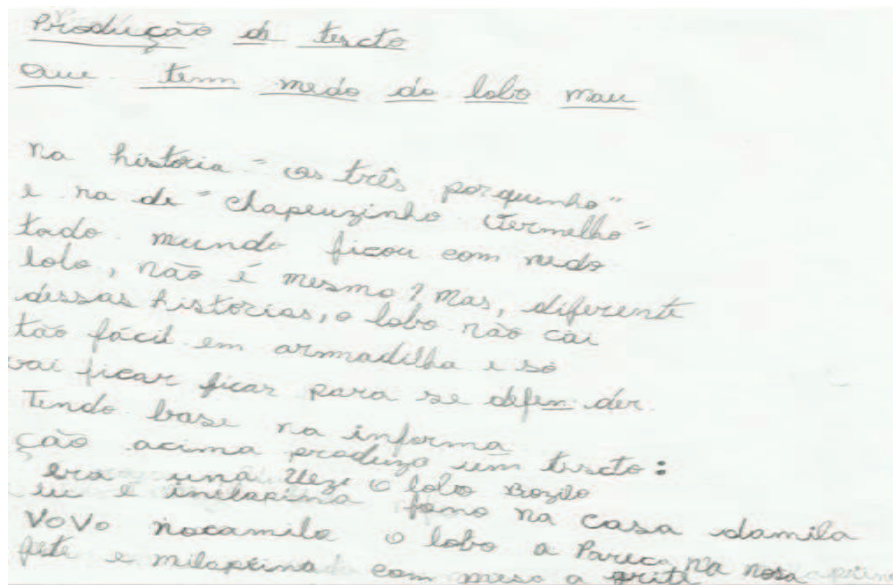 Produção de texcto
Que tem medo do lobo mau
na história "os três porquinho"
e na de "Chapeuzinho Vermelho"
todo mundo ficou com medo
lolo, não é mesmo? Mas, diferente
dessas historias, o lobo não cai
tão fácil em armadilha e só
vai ficar ficar para se defen der.
Tendo base na informa
ção acima produza um texcto:
era uma veze o lobo
e fono na casa damila
VoVo nacamilo o lobo a Pareca na nosa
e milaprima com a grita